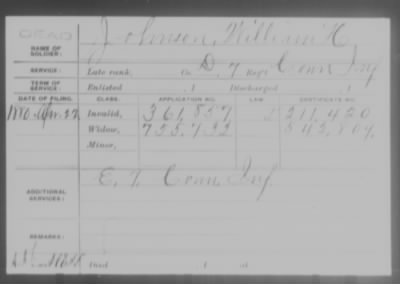 DEAD
NAME OF SOLDIER: Johnson, William H.
SERVICE: Late rank, Co. D, 7 Reg't Conn Inf
TERM OF SERVICE: Enlisted , 1 Discharged , 1
DATE OF FILING. CLASS. APPLICATION NO. LAW. CERTIFICATE NO.
1880 Apr. 22 Invalid, 361,857 211,420
Widow, 735,732 542,804
Minor,
ADDITIONAL SERVICES: E. 7 Conn. Inf.
REMARKS:
Died , 1 at